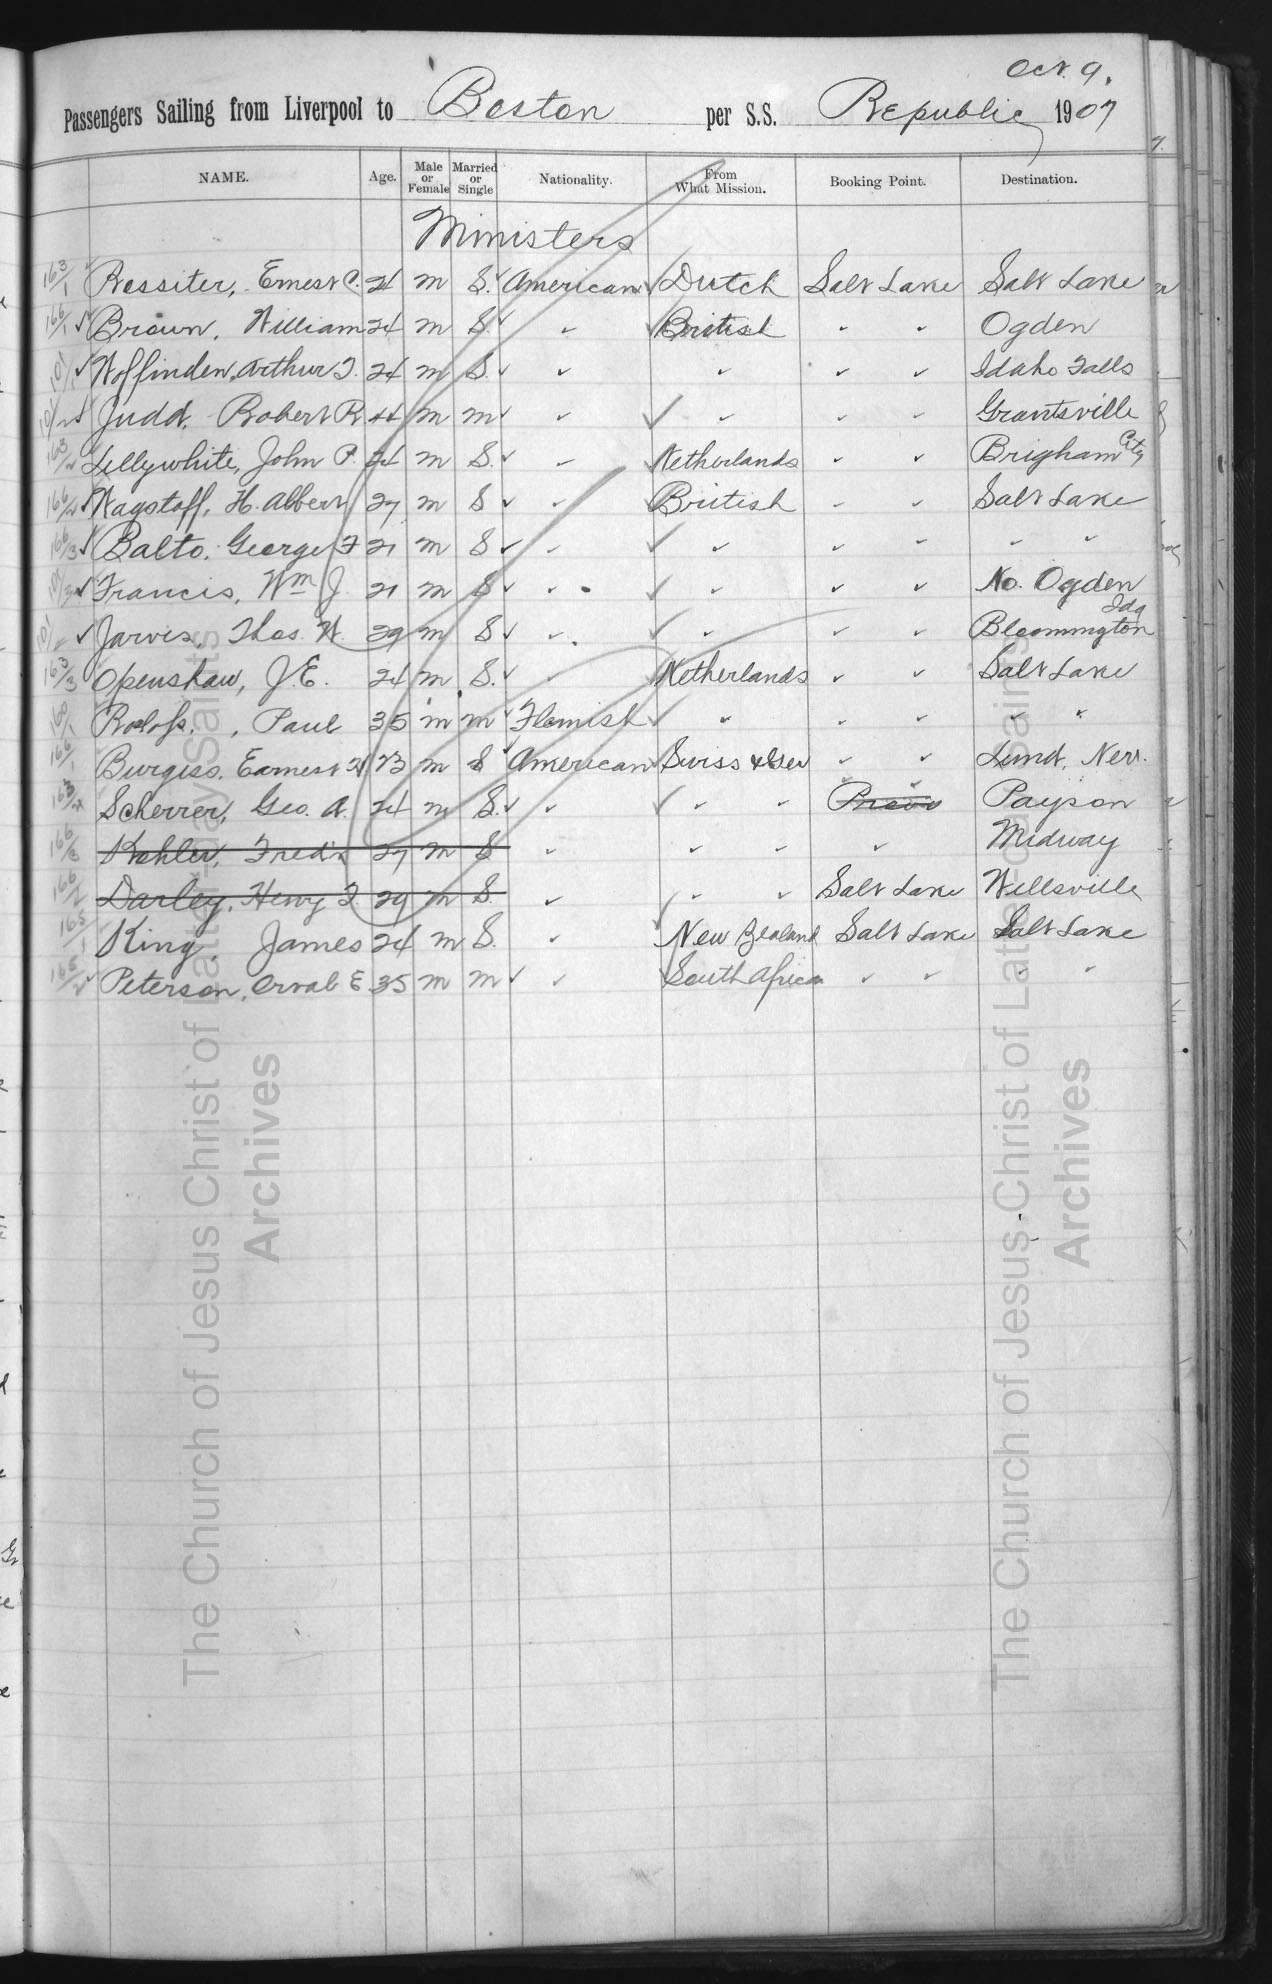 Oct. 9.
Passengers Sailing from Liverpool to Boston per S.S. Republic 1907
NAME. Age. Male or Female Married or Single Nationality. From What Mission. Booking Point. Destination.
Ministers
163/1 Rossiter, Ernest C. 24 m S. American Dutch Salt Lake Salt Lake
166/1 Brown, William 24 m S. " British " " Ogden
101/1 Woffinden, Arthur T. 24 m S. " " " " Idaho Falls
101/2 Judd, Robert R. 44 m m " " " " Grantsville
163/2 Lillywhite, John P. 24 m S. " Netherlands " " Brigham City
166/2 Wagstaff, H. Albert 27 m S " British " " Salt Lake
166/3 Balto, George F 21 m S " " " " " "
101/3 Francis, Wm J. 21 m S " " " " No. Ogden
101/ Jarvis, Thos. W. 29 m S " " " " Bloomington Ida
163/3 Openshaw, J.E. 24 m S. " Netherlands " " Salt Lake
160/1 Roelofs, Paul 35 m m Flemish " " " " "
166/1 Burgess, Earnest W 23 m S American Swiss & Ger " " Lund, Nev.
163/4 Scherrer, Geo. A. 24 m S. " " " Provo Payson
166/3 Kohler, Fred'k 27 m S " " " " Midway
166/2 Darley, Henry F. 29 m S. " " " Salt Lake Wellsville
165/1 King, James 24 m S. " New Zealand Salt Lake Salt Lake
165/2 Peterson, Orval E 35 m m " South Africa " " " "
The Church of Jesus Christ of Latter-day Saints
Archives
The Church of Jesus Christ of Latter-day Saints
Archives